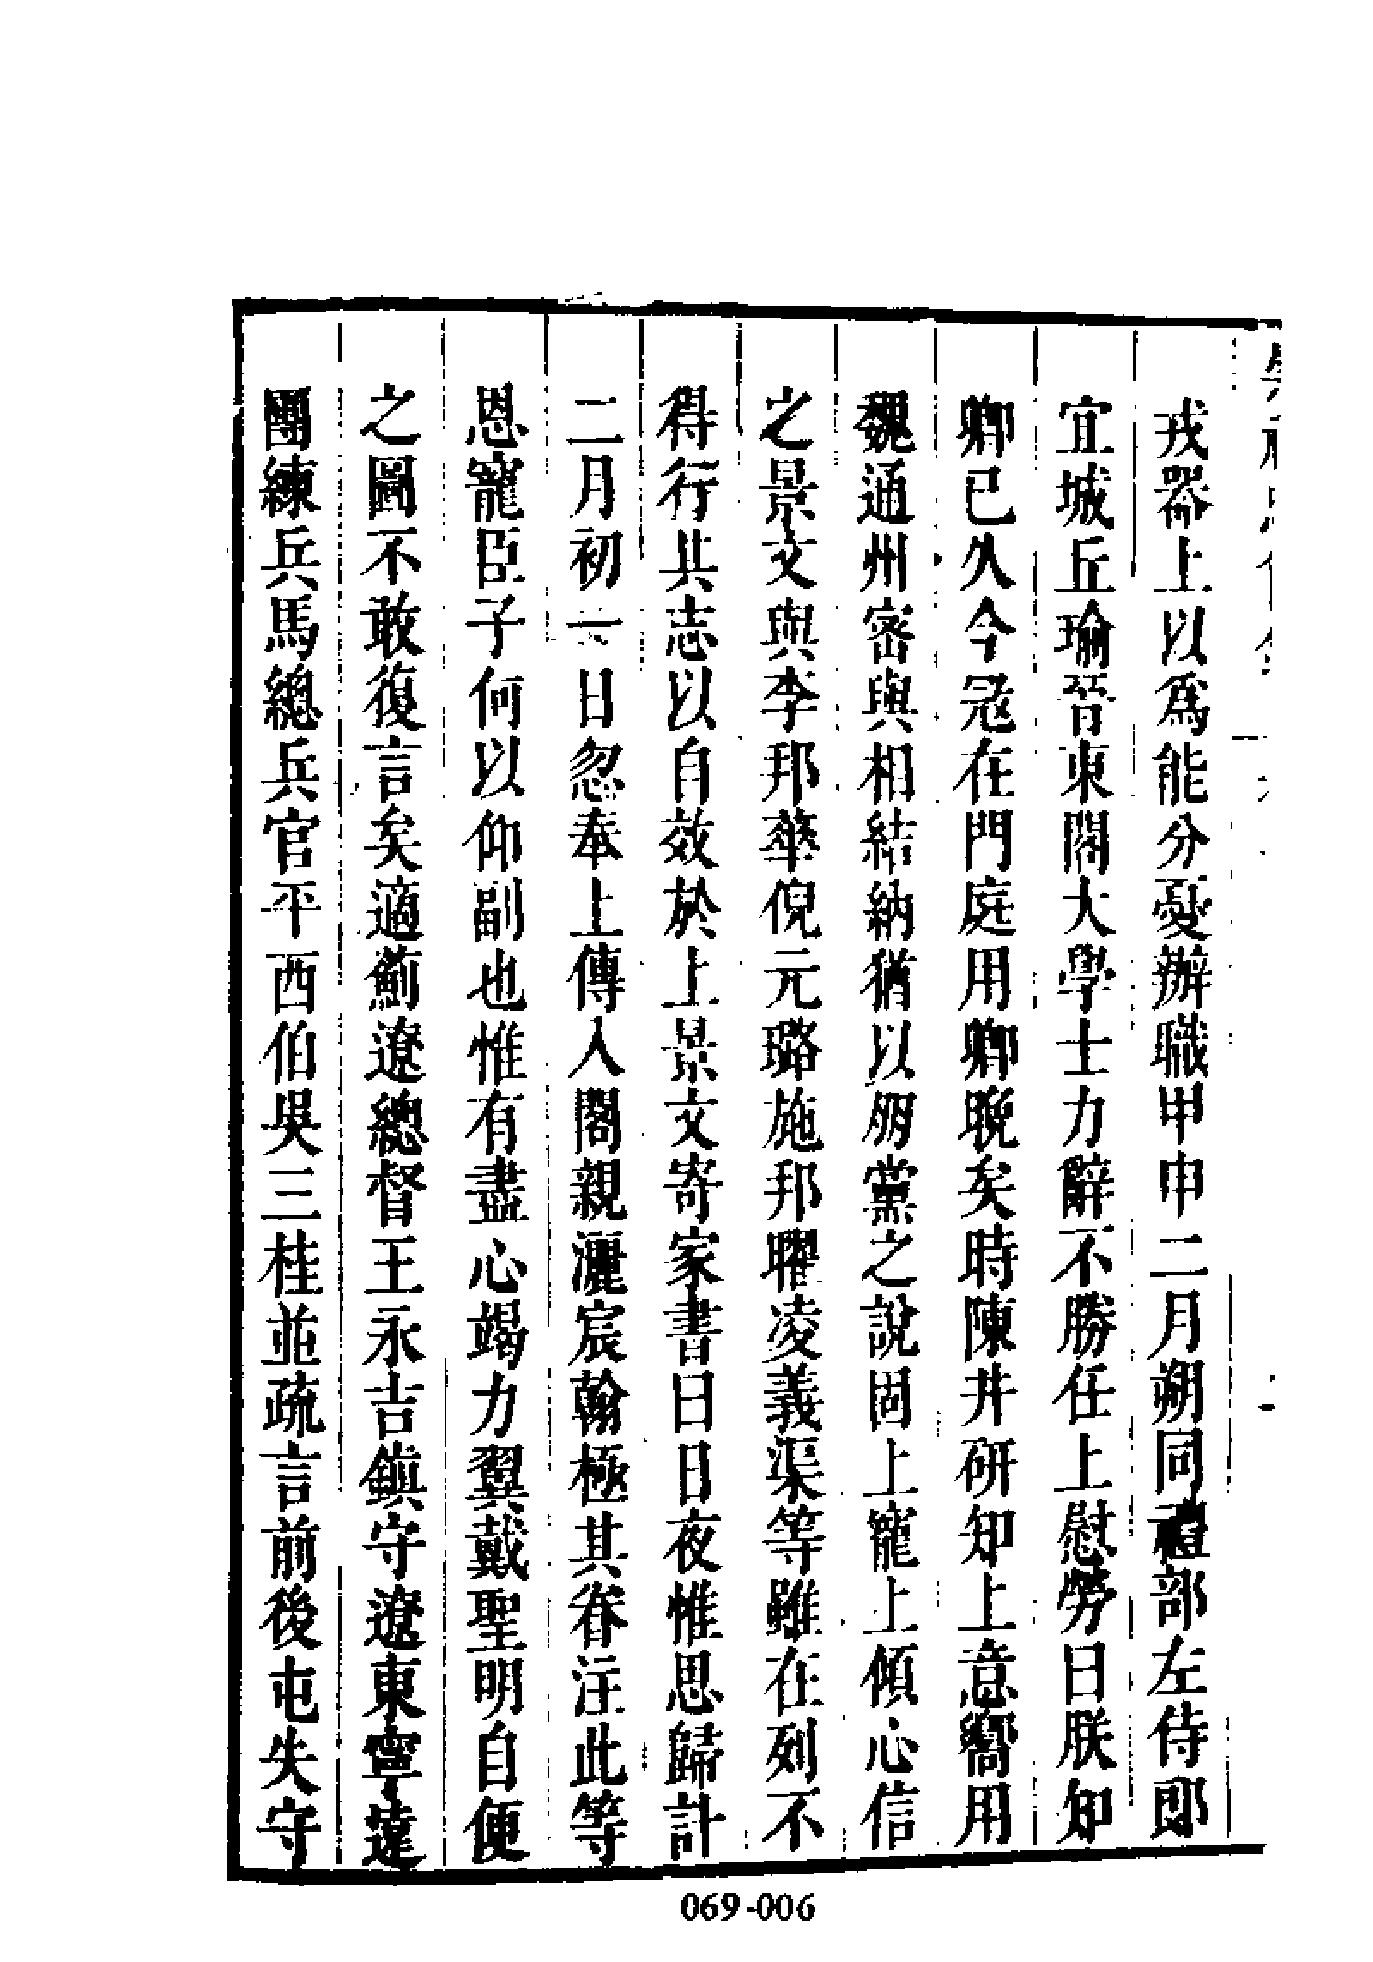 戎器上以爲能分憂辦職甲申二月朔同禮部左侍郎
宜城丘瑜晉東閣大學士力辭不勝任上慰勞曰朕知
卿已久今冦在門庭用卿晚矣時陳井研知上意嚮用
魏通州密與相結納猶以朋黨之說固上寵上傾心信
之景文與李邦華倪元璐施邦曜凌義渠等雖在列不
得行其志以自效於上景文寄家書曰日夜惟思歸計
二月初一日忽奉上傳入閣親灑宸翰極其眷注此等
恩寵臣子何以仰副也惟有盡心竭力翼戴聖明自便
之圖不敢復言矣適薊遼總督王永吉鎮守遼東寧遠
團練兵馬總兵官平西伯吳三桂並疏言前後屯失守
069-006